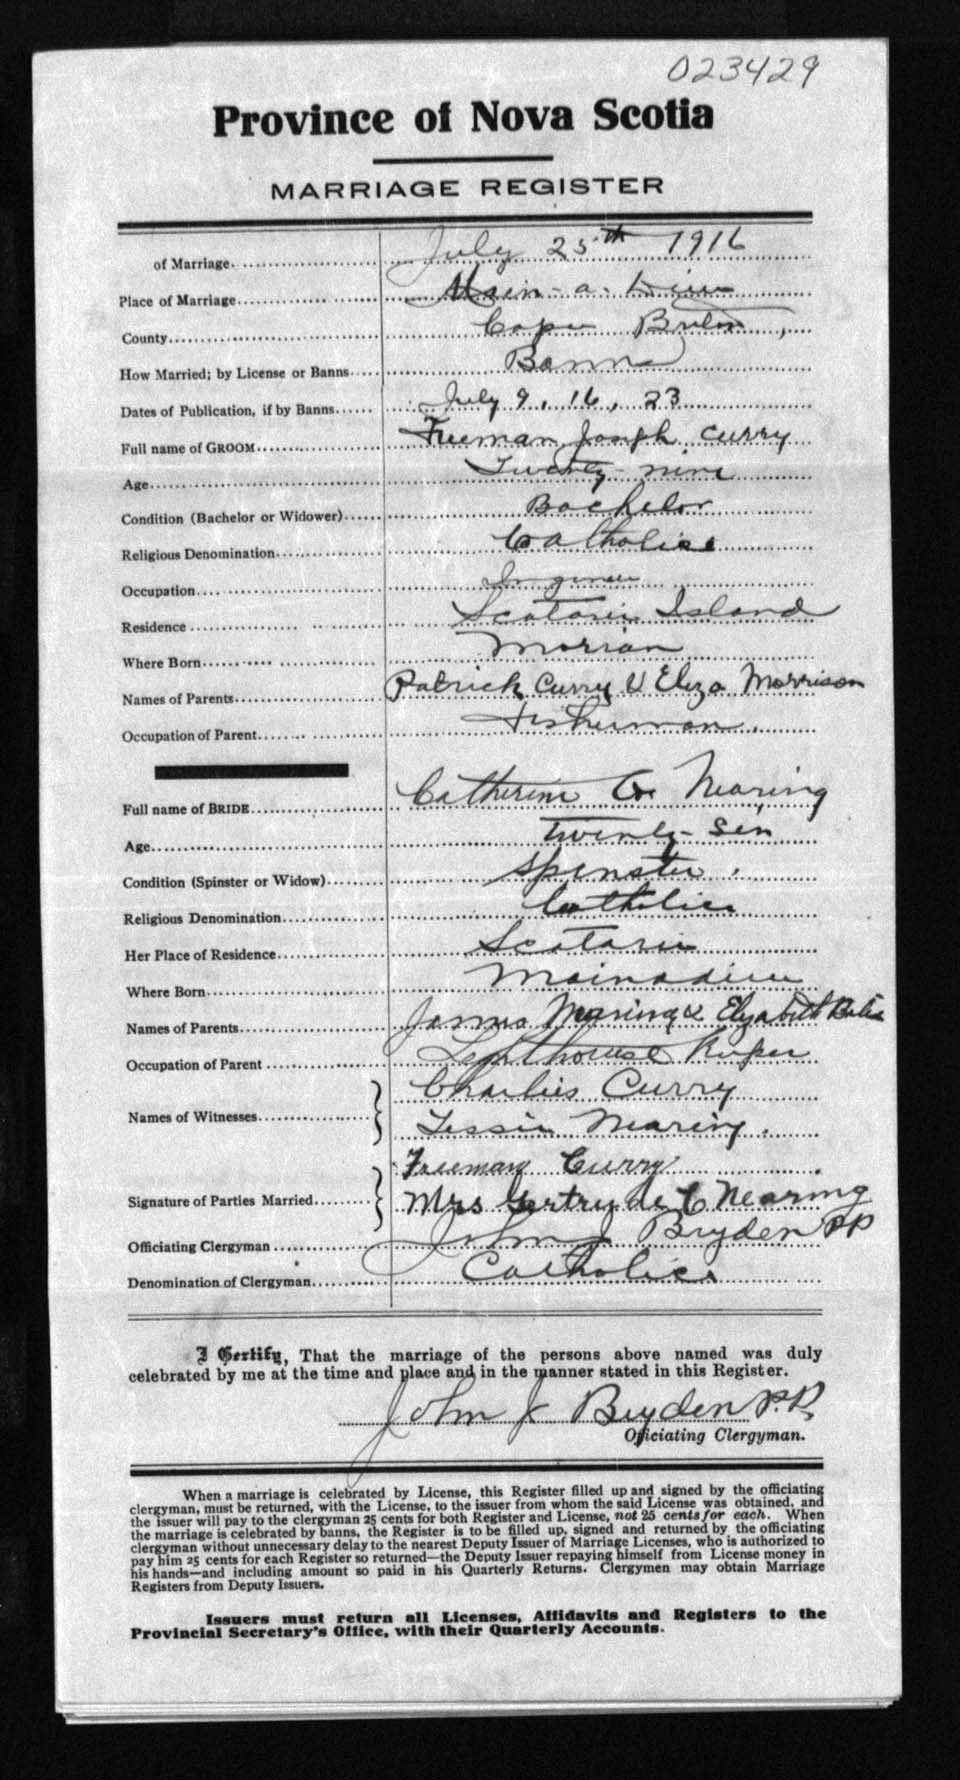 023429
Province of Nova Scotia
MARRIAGE REGISTER
of Marriage. July 25th 1916
Place of Marriage Main-a-Dieu
County Cape Breton,
How Married; by License or Banns Banns
Dates of Publication, if by Banns July 9, 16, 23
Full name of GROOM Freeman Joseph Curry
Age Twenty-nine
Condition (Bachelor or Widower) Bachelor
Religious Denomination Catholic
Occupation
Residence Scatarie Island
Where Born Morrian
Names of Parents Patrick Curry & Eliza Morrison
Occupation of Parent Fisherman.
Full name of BRIDE Catherine G. Nearing
Age Twenty-six
Condition (Spinster or Widow) Spinster.
Religious Denomination Catholic
Her Place of Residence Scatarie
Where Born Mainadieu
Names of Parents James Nearing & Elizabeth
Occupation of Parent Lighthouse Keeper
Names of Witnesses Charlies Curry
Tessie Nearing.
Freeman Curry
Signature of Parties Married Mrs Gertrude C Nearing
Officiating Clergyman John J Bryden PP
Denomination of Clergyman Catholic
I Certify, That the marriage of the persons above named was duly
celebrated by me at the time and place and in the manner stated in this Register.
John J Bryden P.P.
Officiating Clergyman.
When a marriage is celebrated by License, this Register filled up and signed by the officiating
clergyman, must be returned, with the License, to the issuer from whom the said License was obtained, and
the issuer will pay to the clergyman 25 cents for both Register and License, not 25 cents for each. When
the marriage is celebrated by banns, the Register is to be filled up, signed and returned by the officiating
clergyman without unnecessary delay to the nearest Deputy Issuer of Marriage Licenses, who is authorized to
pay him 25 cents for each Register so returned—the Deputy Issuer repaying himself from License money in
his hands—and including amount so paid in his Quarterly Returns. Clergymen may obtain Marriage
Registers from Deputy Issuers.
Issuers must return all Licenses, Affidavits and Registers to the
Provincial Secretary's Office, with their Quarterly Accounts.